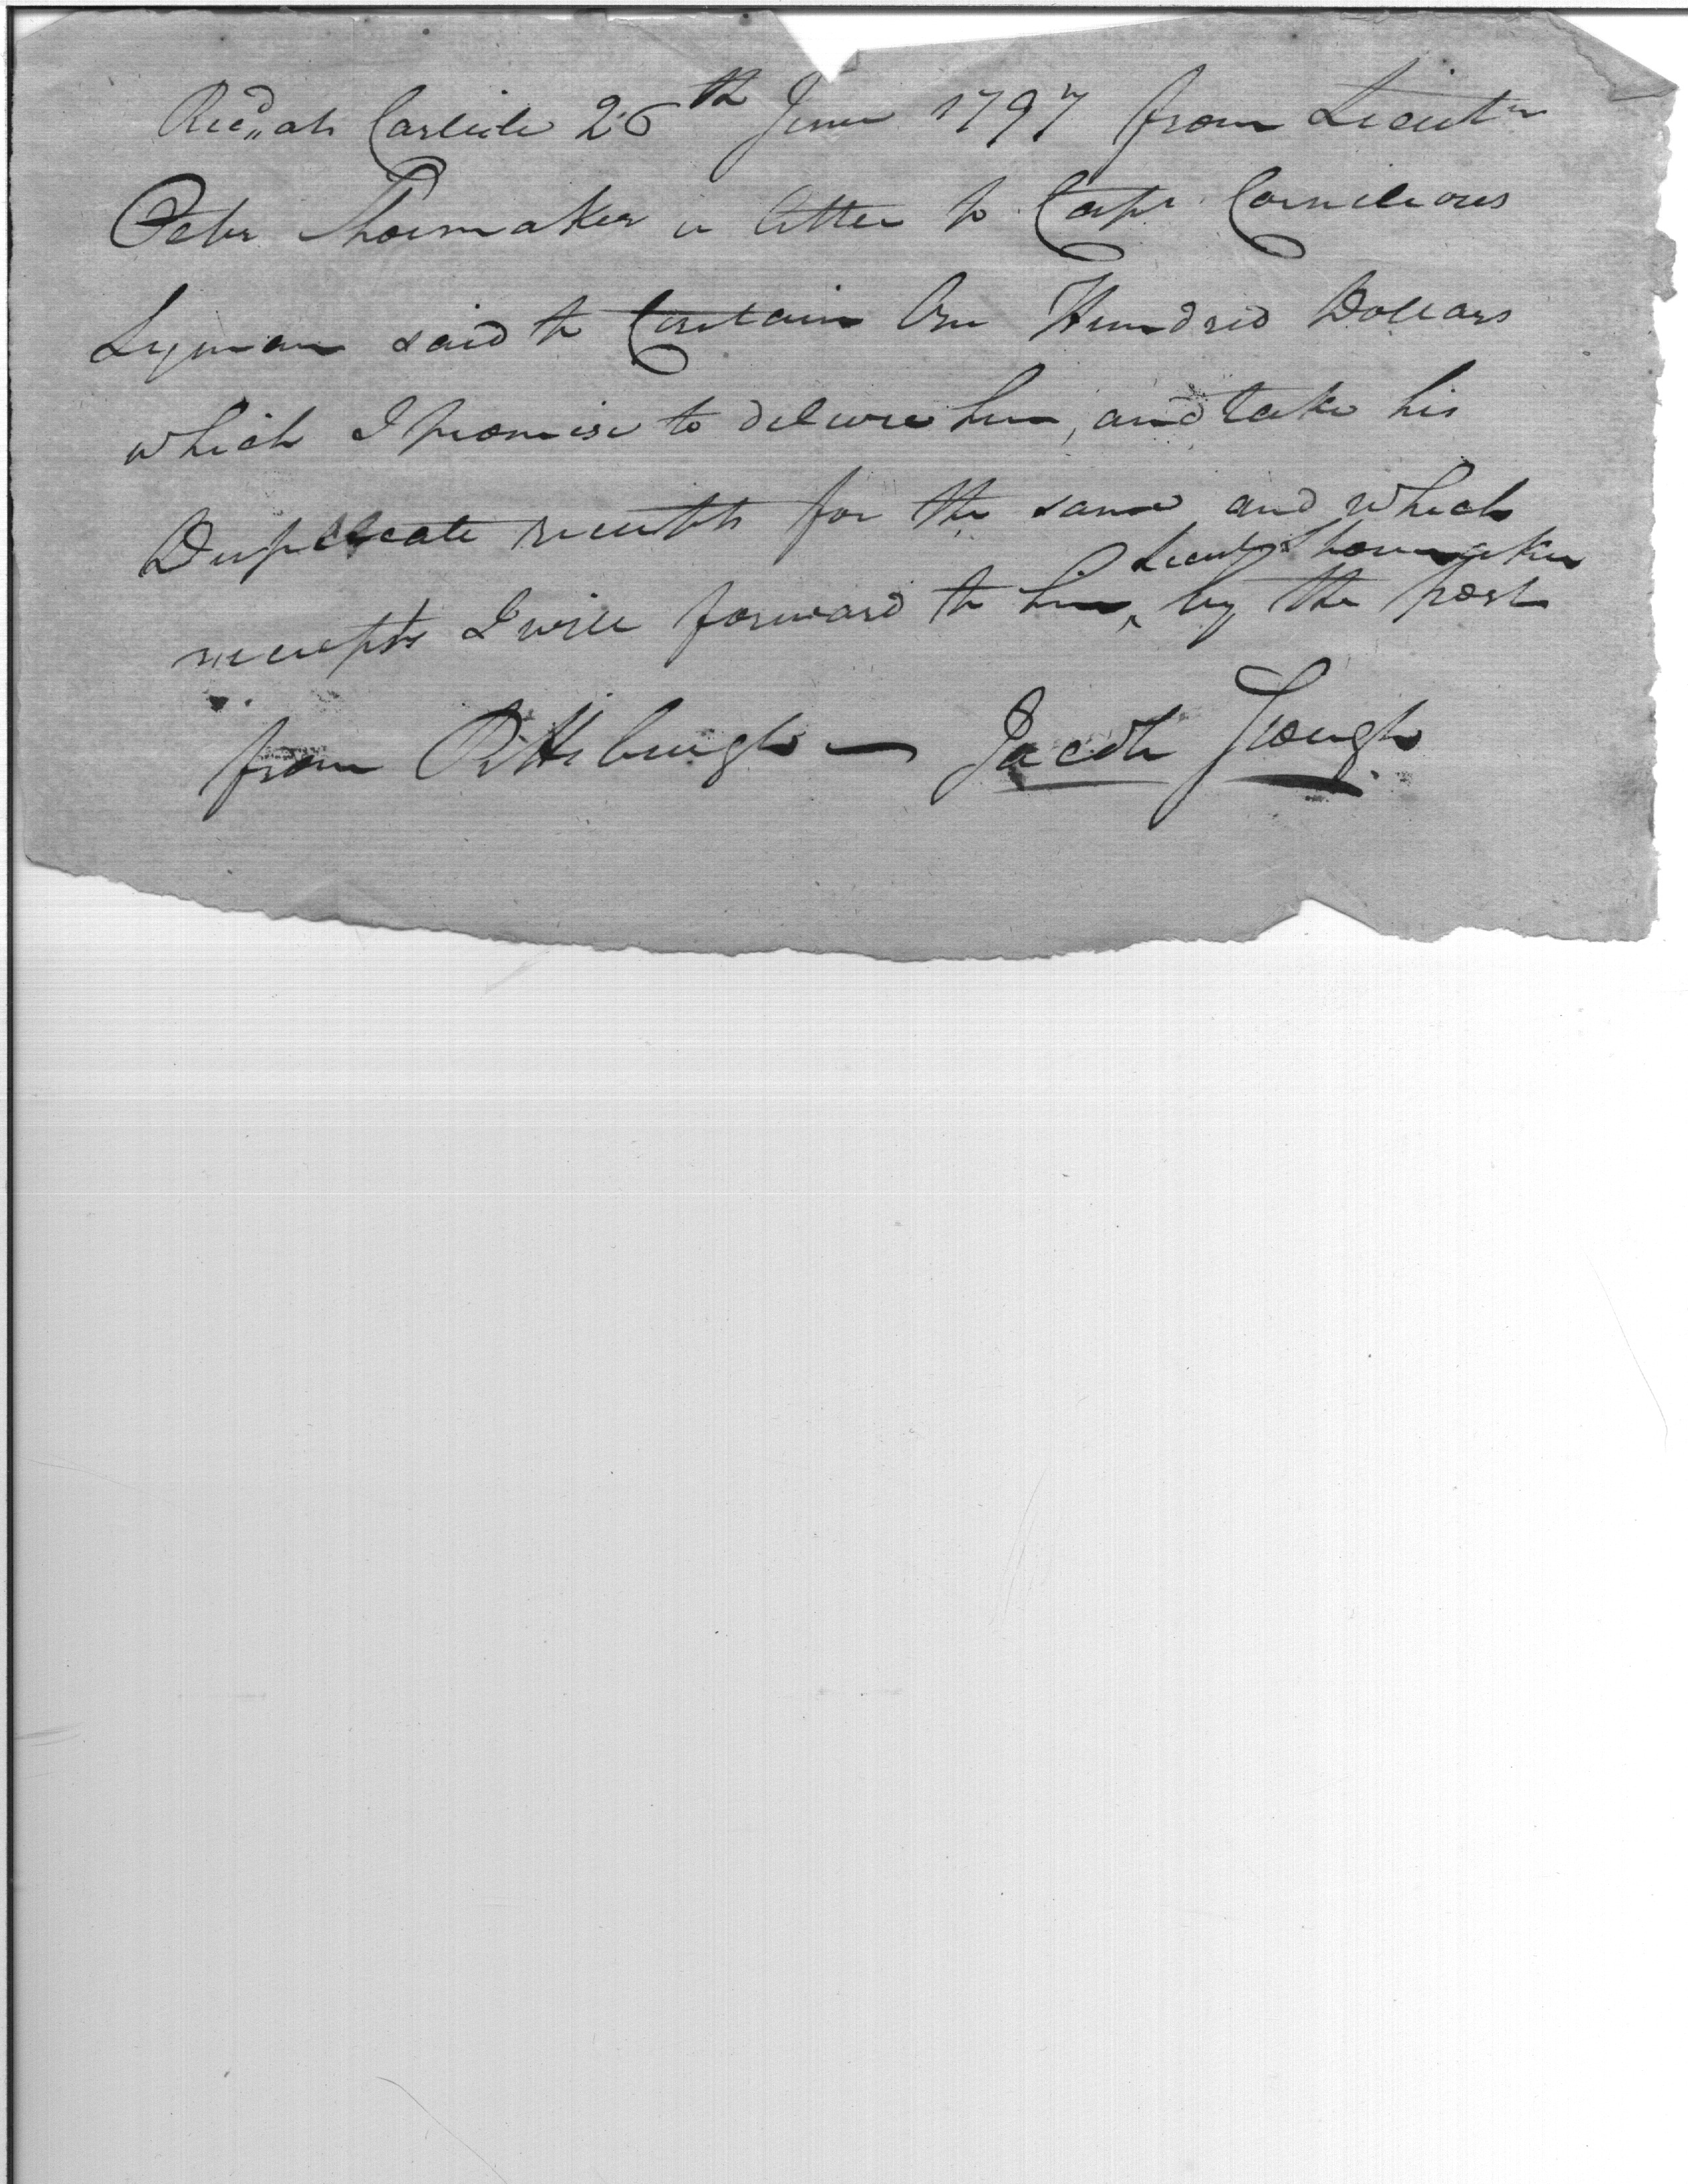 Rec^d at Carlisle 26th June 1797 from Lieut^n
Peter Shoemaker a letter to Capt Cornelious
Lyman said to Contain One Hundred Dollars
which I promise to deliver him, and take his
Duplicate receipts for the same and which
Lieut Shoemaker
receipts I will forward to him ‸ by the post
from Pittsburgh — Jacob